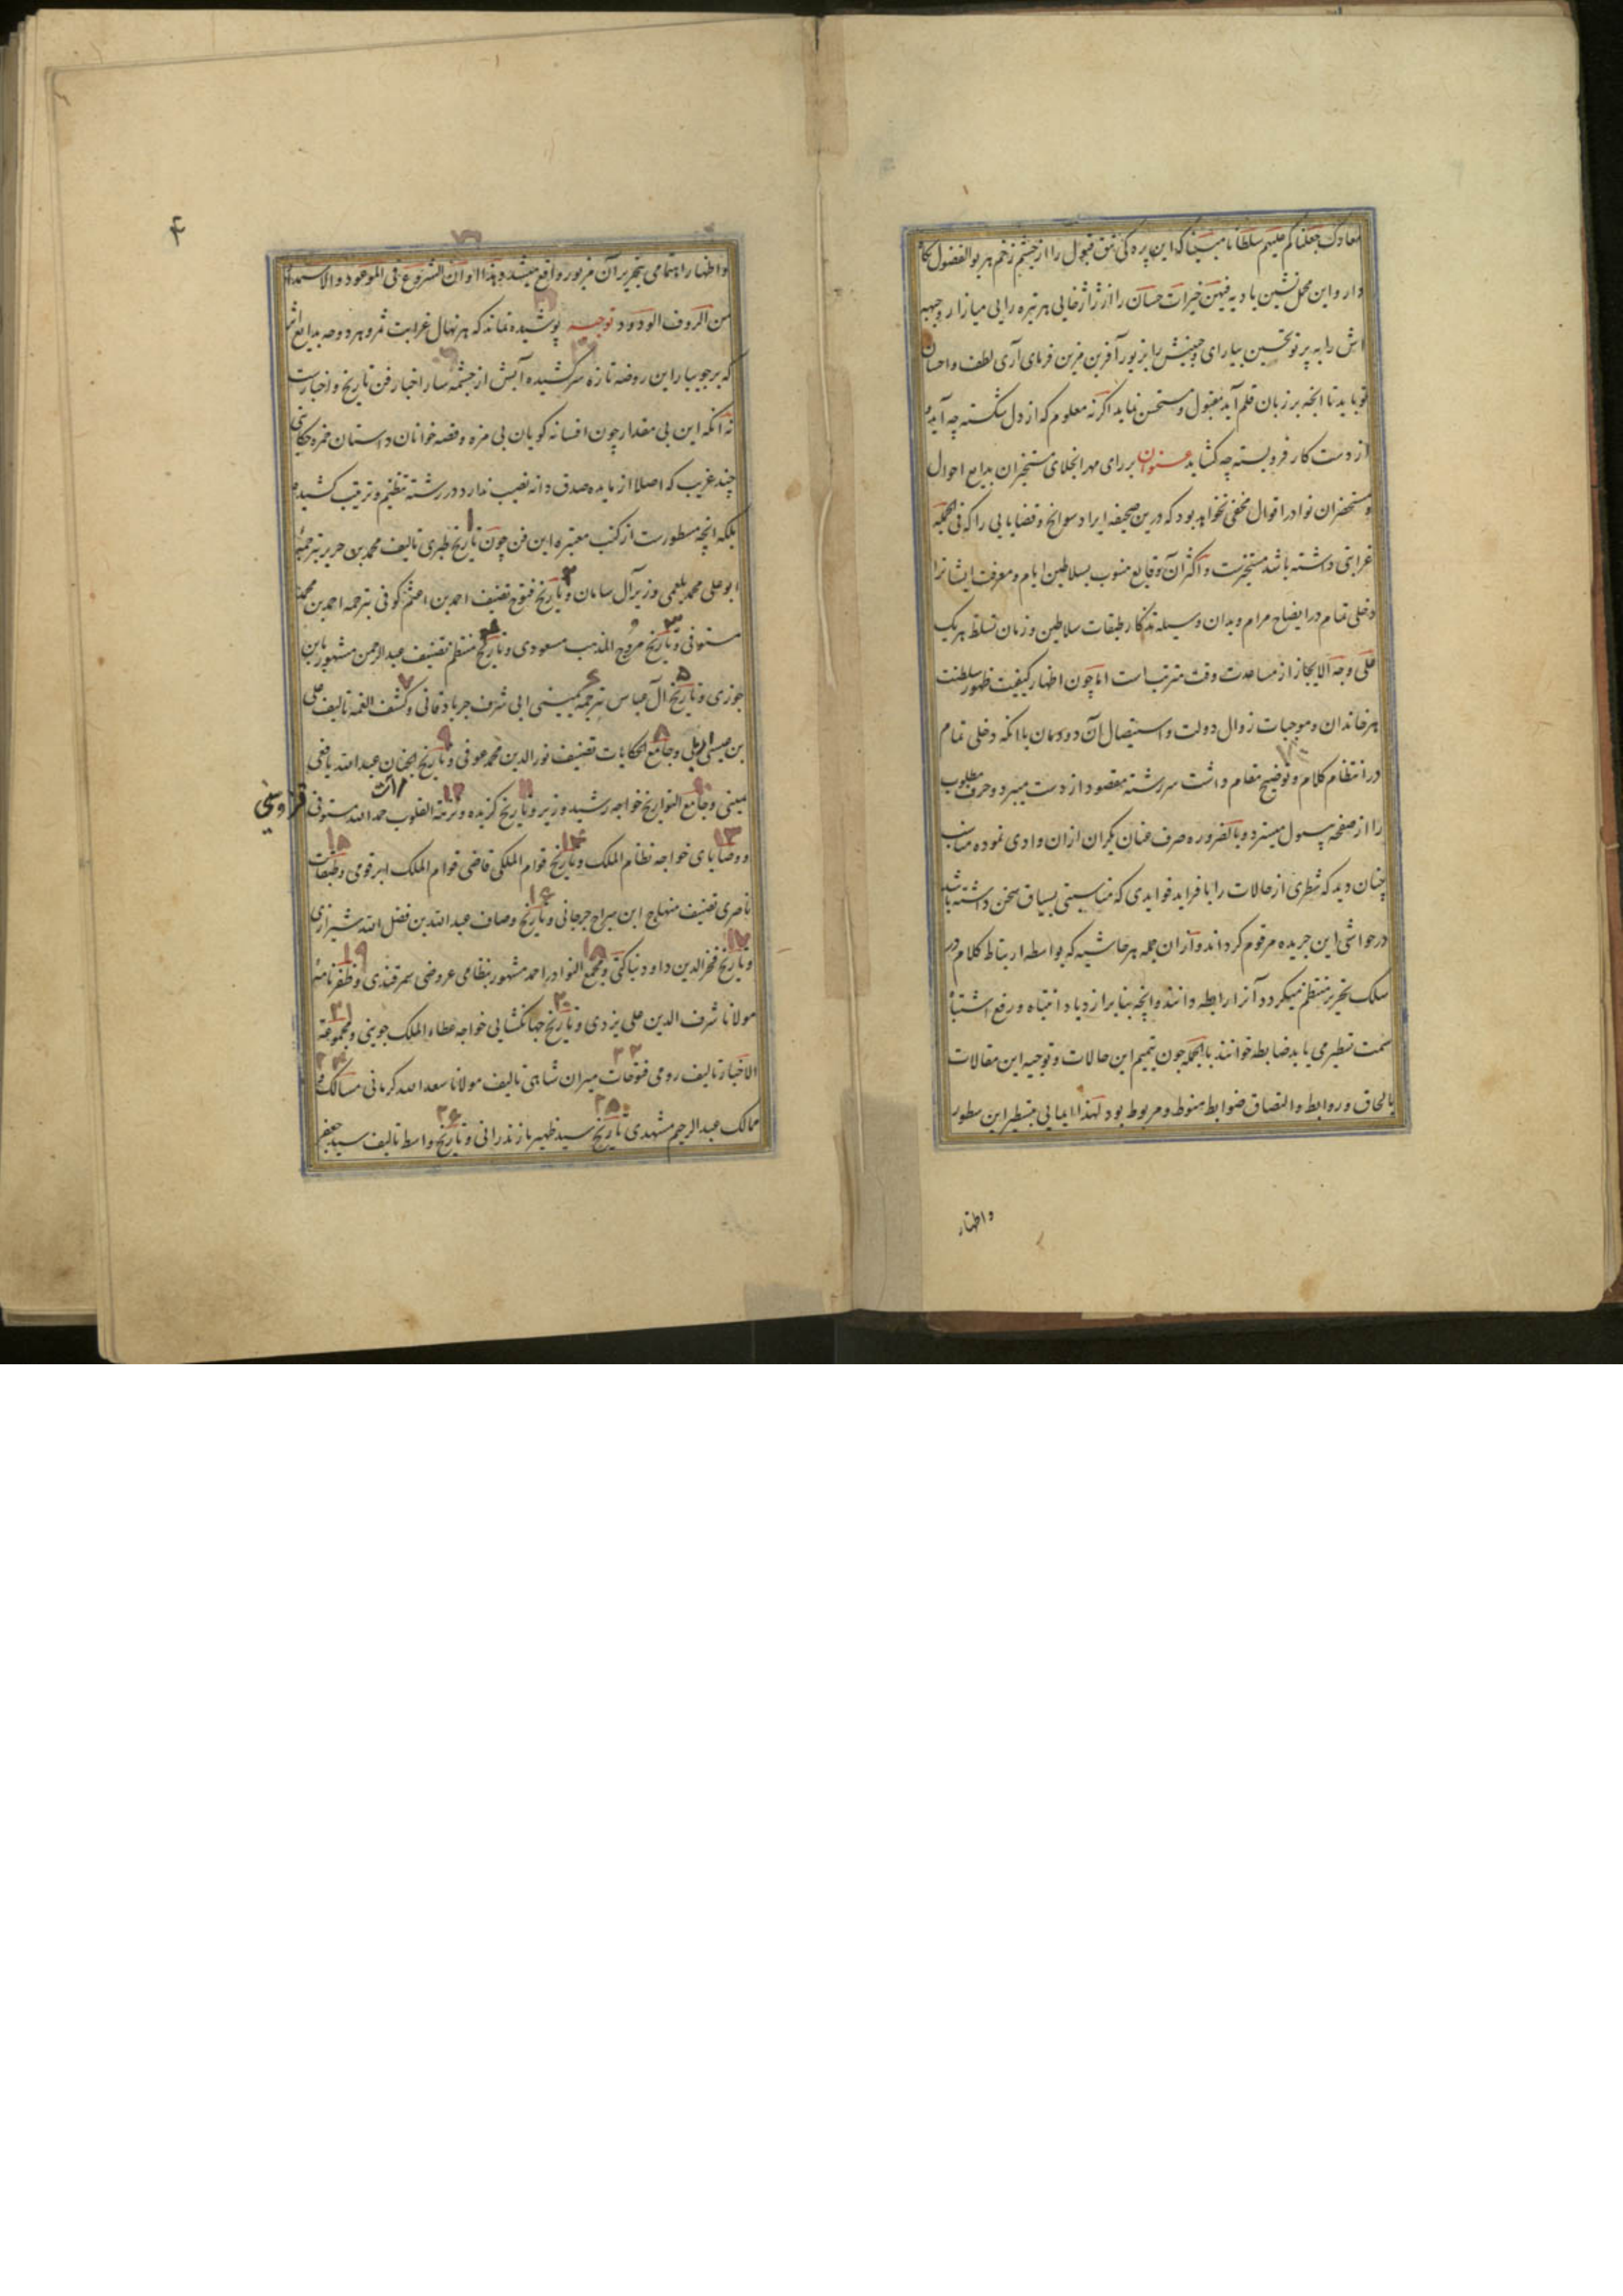 معادک جعلنا کم علیهم سلطانا مبینا که این پرده کی تتق قبول را از چشم زخم هر بوالفضول نگاه
دار و این محل نشین بادیه فیهن خیرات حسان را از ژاژخایی هر تیره رایی میازار و جبهه
اش را به پرتو تحسین بیارای و جبینش را بزیور آفرین مزین فرمای آری لطف و احسان
تو باید تا انچه بر زبان قلم آید مقبول و مستحسن نماید اگر نه معلوم که از دل شکسته چه آید و
از دست کار فروبسته چه کشاید عنوان بر رای مهر انجلای مستخبران بدایع احوال
و مستحضران نوادر اقوال مخفی نخواهد بود که درین صحیفه ایراد سوانح و قضایایی را که فی الجمله
غرابتی داشته باشد مستخبرنست و اکثر آن وقایع منسوب بسلاطین ایام و معرفت ایشانرا
دخلی تمام در ایضاح مرام و بدان وسیله تذکار طبقات سلاطین و زمان تسلط هر یک
علی وجه الایجاز از مساعدت وقت مترتب است اما چون اظهار کیفیت ظهور سلطنت
هر خاندان و موجبات زوال دولت و استیصال آن دودمان با انکه دخلی تمام
در انتظام کلام و توضیح مقام داشت سررشته مقصود از دست میبرد و حرف مطلوب
را از صفحه مسول میسترد و بالضرور صرف عنان یکران ازان وادی نموده مناسب
چنان دید که شطری از حالات را با فراید فوایدی که مناسبتی بسیاق سخن داشته باشد
در حواشی این جریده مرقوم کرداند و ازان جمله هر حاشیه که بواسطه ارتباط کلام در
سلک تحریر منتظم میکردد آنرا رابطه دانند و انچه بنابر ازدیاد انتباه و رفع اشتباه
سمت تسطیر می یابد ضابطه خوانند بالجمله چون تتمیم این حالات و توجیه این مقالات
بالحاق و روابط و التصاق ضوابط منوط و مربوط بود لهذا ایمایی بتسطیر این سطور
و اظهار
۴
و اظهار اهتمامی بتحریر آن مزبور واقع میشد و هذا اوان الشروع فی الموعود و الاستمداد
من الروف الودود توجیه پوشیده نماند که هر نهال غرابت ثمر و هر دوحه بدایع اثر
که بر جویبار این روضه تازه سرکشیده آبش از چشمه سار اخبار فن تاریخ و اخبارست
نه انکه این بی مقدار چون افسانه کویان بی مزه و قصه خوانان داستان حمزه حکایتی
چند غریب که اصلا از مایده صدق دانه نصیب ندارد در رشته تنظیم و ترتیب کشیده
بلکه انچه مسطورست از کتب معتبره این فن چون تاریخ طبری تالیف محمد بن جریر بترجمه
ابو علی محمد بلعمی وزیر آل سامان و تاریخ فتوح تصنیف احمد بن اعثم کوفی بترجمه احمد بن محمد
مستوفی و تاریخ مروج الذهب مسعودی و تاریخ منتظم تصنیف عبد الرحمن مشهور بابن
جوزی و تاریخ آل عباس ترجمه یمینی ابی شرف جربادقانی و کشف الغمه تالیف علی
بن عیسی اربلی و جامع الحکایات تصنیف نور الدین محمد عوفی و تاریخ الجنان عبد الله یافعی
یمینی و جامع التواریخ خواجه رشید وزیر و تاریخ کزیده و نزهة القلوب حمد الله مستوفی قزوینی
و وصایای خواجه نظام الملک و تاریخ قوام الملکی قاضی قوام الملک ابرقوهی و طبقات
ناصری تصنیف منهاج ابن سراج جرجانی و تاریخ وصاف عبد الله بن فضل الله شیرازی
و تاریخ فخر الدین داود بناکتی و مجمع النوادر احمد مشهور بنظامی عروضی سمرقندی و ظفرنامه
مولانا شرف الدین علی یزدی و تاریخ جهانکشایی خواجه عطاء الملک جوینی و مجموعه
الاخبار تالیف رومی فتوحات میران شاهی تالیف مولانا سعد الله کرمانی مسالک و
ممالک عبد الرحیم مشهدی تاریخ سید ظهیر مازندرانی و تاریخ واسط تالیف سید جعفر